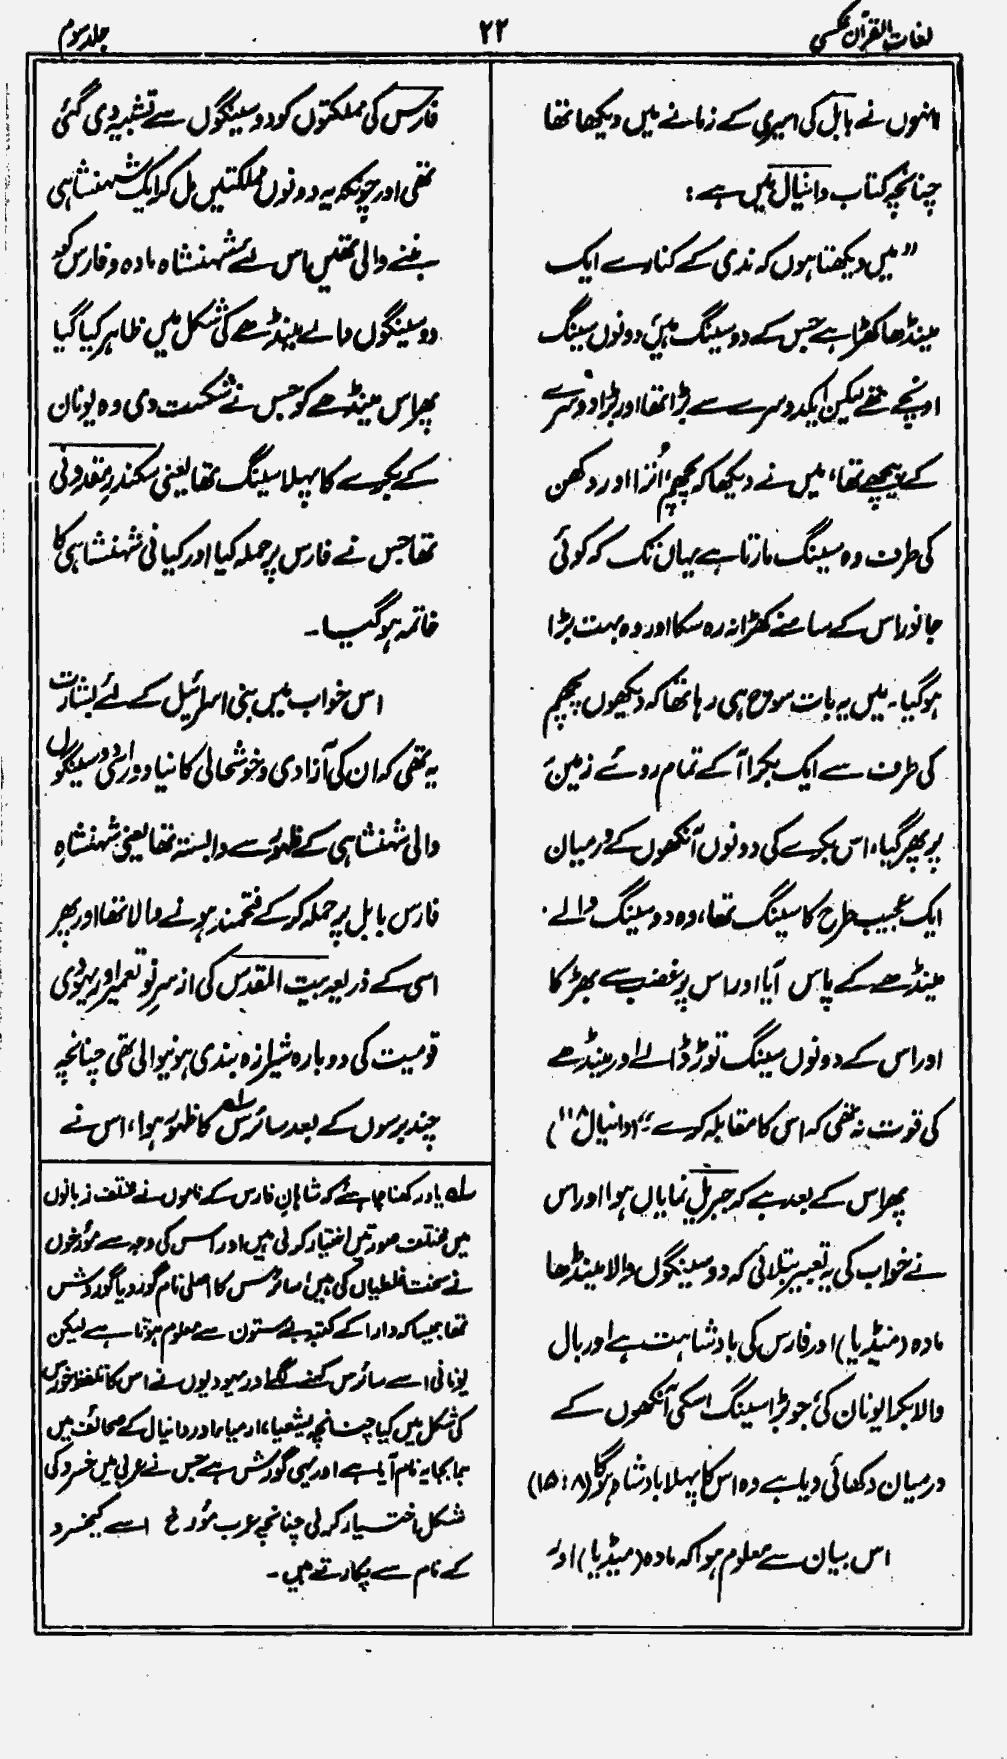 لغات القرآن عکسی
۲۲
جلد سوم
انہوں نے بابل کی اسیری کے زمانے میں دیکھا تھا
چنانچہ کتاب دانیال میں ہے :
”میں دیکھتا ہوں کہ ندی کے کنارے ایک
مینڈھا کھڑا ہے جس کے دو سینگ ہیں دونوں سینگ
اونچے تھے لیکن ایک دوسرے سے بڑا تھا اور بڑا دوسرے
کے پیچھے تھا، میں نے دیکھا کہ پچھم، اتر اور دکھن
کی طرف وہ سینگ مارتا ہے یہاں تک کہ کوئی
جانور اس کے سامنے کھڑا نہ رہ سکا اور وہ بہت بڑا
ہو گیا۔ میں یہ بات سوچ ہی رہا تھا کہ دیکھوں پچھم
کی طرف سے ایک بکرا آ کے تمام روئے زمین
پر پھر گیا، اس بکرے کی دونوں آنکھوں کے درمیان
ایک عجیب طرح کا سینگ تھا، وہ دو سینگ والے
مینڈھے کے پاس آیا اور اس پر غضب سے بھڑکا
اور اس کے دونوں سینگ توڑ ڈالے اور مینڈھے
کی قوت نہ تھی کہ اس کا مقابلہ کرے“ (دانیال ۸:۱)
پھر اس کے بعد ہے کہ جبریل نمایاں ہوا اور اس
نے خواب کی یہ تعبیر بتلائی کہ دو سینگوں والا مینڈھا
مادہ (میڈیا) اور فارس کی بادشاہت ہے اور بال
والا بکرا یونان کی، جو بڑا سینگ اسکی آنکھوں کے
درمیان دکھائی دیا ہے وہ اس کا پہلا بادشاہ ہوگا (۸:۱۵)
اس بیان سے معلوم ہوا کہ مادہ (میڈیا) اور
فارس کی مملکتوں کو دو سینگوں سے تشبیہ دی گئی
تھی اور چونکہ یہ دونوں مملکتیں مل کر ایک شہنشاہی
بننے والی تھیں اس لئے شہنشاہ مادہ و فارس کو
دو سینگوں والے مینڈھے کی شکل میں ظاہر کیا گیا
پھر اس مینڈھے کو جس نے شکست دی وہ یونان
کے بکرے کا پہلا سینگ تھا یعنی سکندر مقدونی
تھا جس نے فارس پر حملہ کیا اور کیانی شہنشاہی کا
خاتمہ ہو گیا۔
اس خواب میں بنی اسرائیل کے لئے بشارت
یہ تھی کہ ان کی آزادی و خوشحالی کا نیا دور اسی دو سینگوں
والی شہنشاہی کے ظہور سے وابستہ تھا یعنی شہنشاہِ
فارس بابل پر حملہ کر کے فتحمند ہونے والا تھا اور پھر
اسی کے ذریعہ بیت المقدس کی از سرِ نو تعمیر اور یہودی
قومیت کی دوبارہ شیرازہ بندی ہونیوالی تھی چنانچہ
چند برسوں کے بعد سائرس لہ کا ظہور ہوا، اس نے
لہ یاد رکھنا چاہئے کہ شاہانِ فارس کے ناموں نے مختلف زبانوں
میں مختلف صورتیں اختیار کر لی ہیں اور اس کی وجہ سے مؤرخوں
نے سخت غلطیاں کی ہیں، سائرس کا اصلی نام گورو یا گوروش
تھا جیسا کہ دارا کے کتبہ بے ستون سے معلوم ہوتا ہے لیکن
یونانی اسے سائرس کہنے لگے اور یہودیوں نے اس کا تلفظ خورس
کی شکل میں کیا چنانچہ یشعیا، ارمیا، اور دانیال کے صحائف میں
جا بجا یہ نام آیا ہے اور یہی گورش ہے جس نے عربی میں خسرو کی
شکل اختیار کر لی چنانچہ عرب مؤرخ اسے کیخسرو
کے نام سے پکارتے ہیں۔